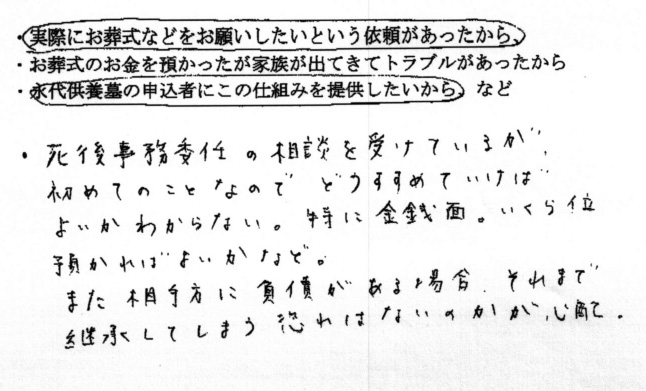 ・実際にお葬式などをお願いしたいという依頼があったから、
・お葬式のお金を預かったが家族が出てきてトラブルがあったから
・永代供養墓の申込者にこの仕組みを提供したいから、など
・死後事務委任の相談を受けているが、
初めてのことなのでどうすすめていけば
よいかわからない。特に金銭面。いくら位
預かればよいかなど。
また相手方に負債がある場合、それまで
継承してしまう恐れはないのかが心配。